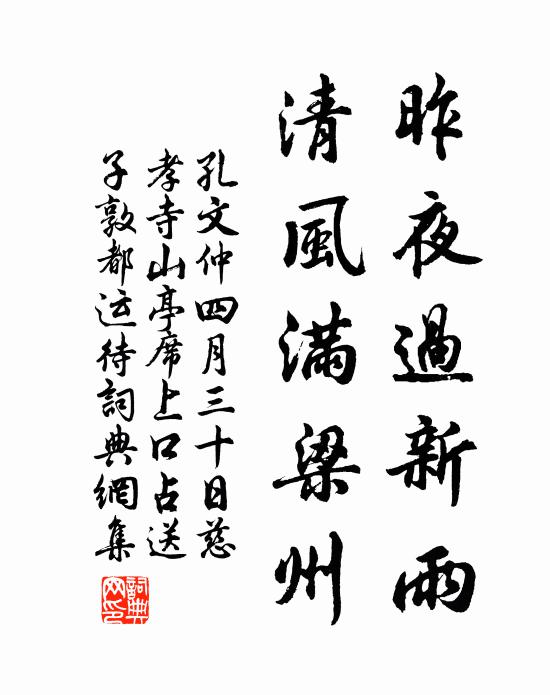 昨夜過新雨
清風滿梁州
孔文仲四月三十日慈
孝寺山亭席上口占送
子敦都运待詞典網集
詞典网印